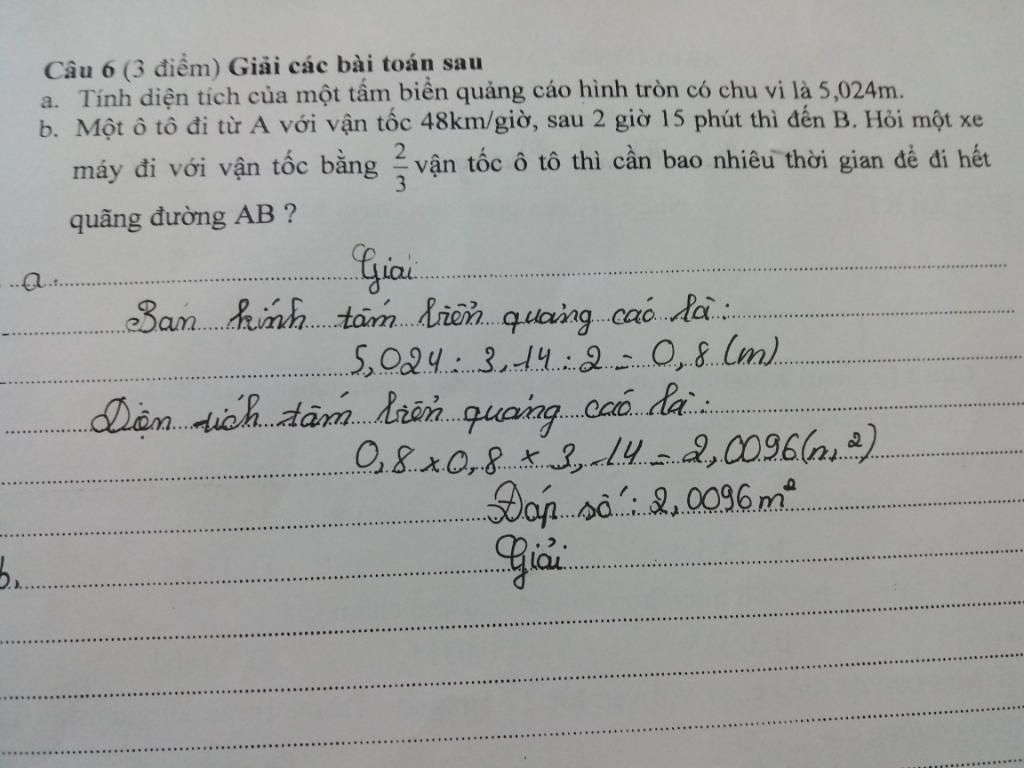 Câu 6 (3 điểm) Giải các bài toán sau
a. Tính diện tích của một tấm biển quảng cáo hình tròn có chu vi là 5,024m.
b. Một ô tô đi từ A với vận tốc 48km/giờ, sau 2 giờ 15 phút thì đến B. Hỏi một xe
máy đi với vận tốc bằng 2/3 vận tốc ô tô thì cần bao nhiêu thời gian để đi hết
quãng đường AB ?
a. Giải
Bán kính tấm biển quảng cáo là:
5,024 : 3,14 : 2 = 0,8 (m)
Diện tích tấm biển quảng cáo là:
0,8 x 0,8 x 3,14 = 2,0096 (m²)
Đáp số: 2,0096 m²
b. Giải